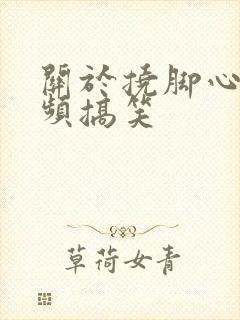 關於撓脚心
頻搞笑
草荷女青